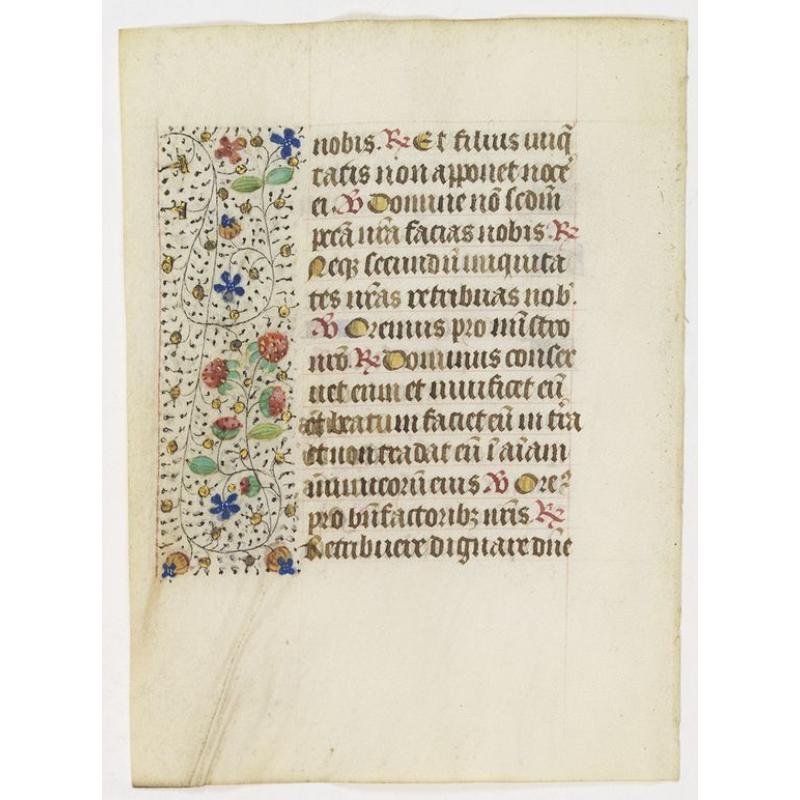 nobis. R̃ Et filius iniq̄
tatis non apponet noce᷑
ei. V̄ Domine nō scdm̄
pccā nr̄a facias nobis. R̃
Neq; secundū iniquita
tes nr̄as retribuas nob᷑.
V̄ Oremus pro mīstro
nr̄o. R̃ Dominus conser
uet eum et uiuificet eū
et beatum faciet eū in tr̄a
et non tradat eū ī aīam
inimicorū eius V̄ Ore᷑
pro bn̄factoribȝ nr̄is. R̃
Retribuere dignare dn̄e